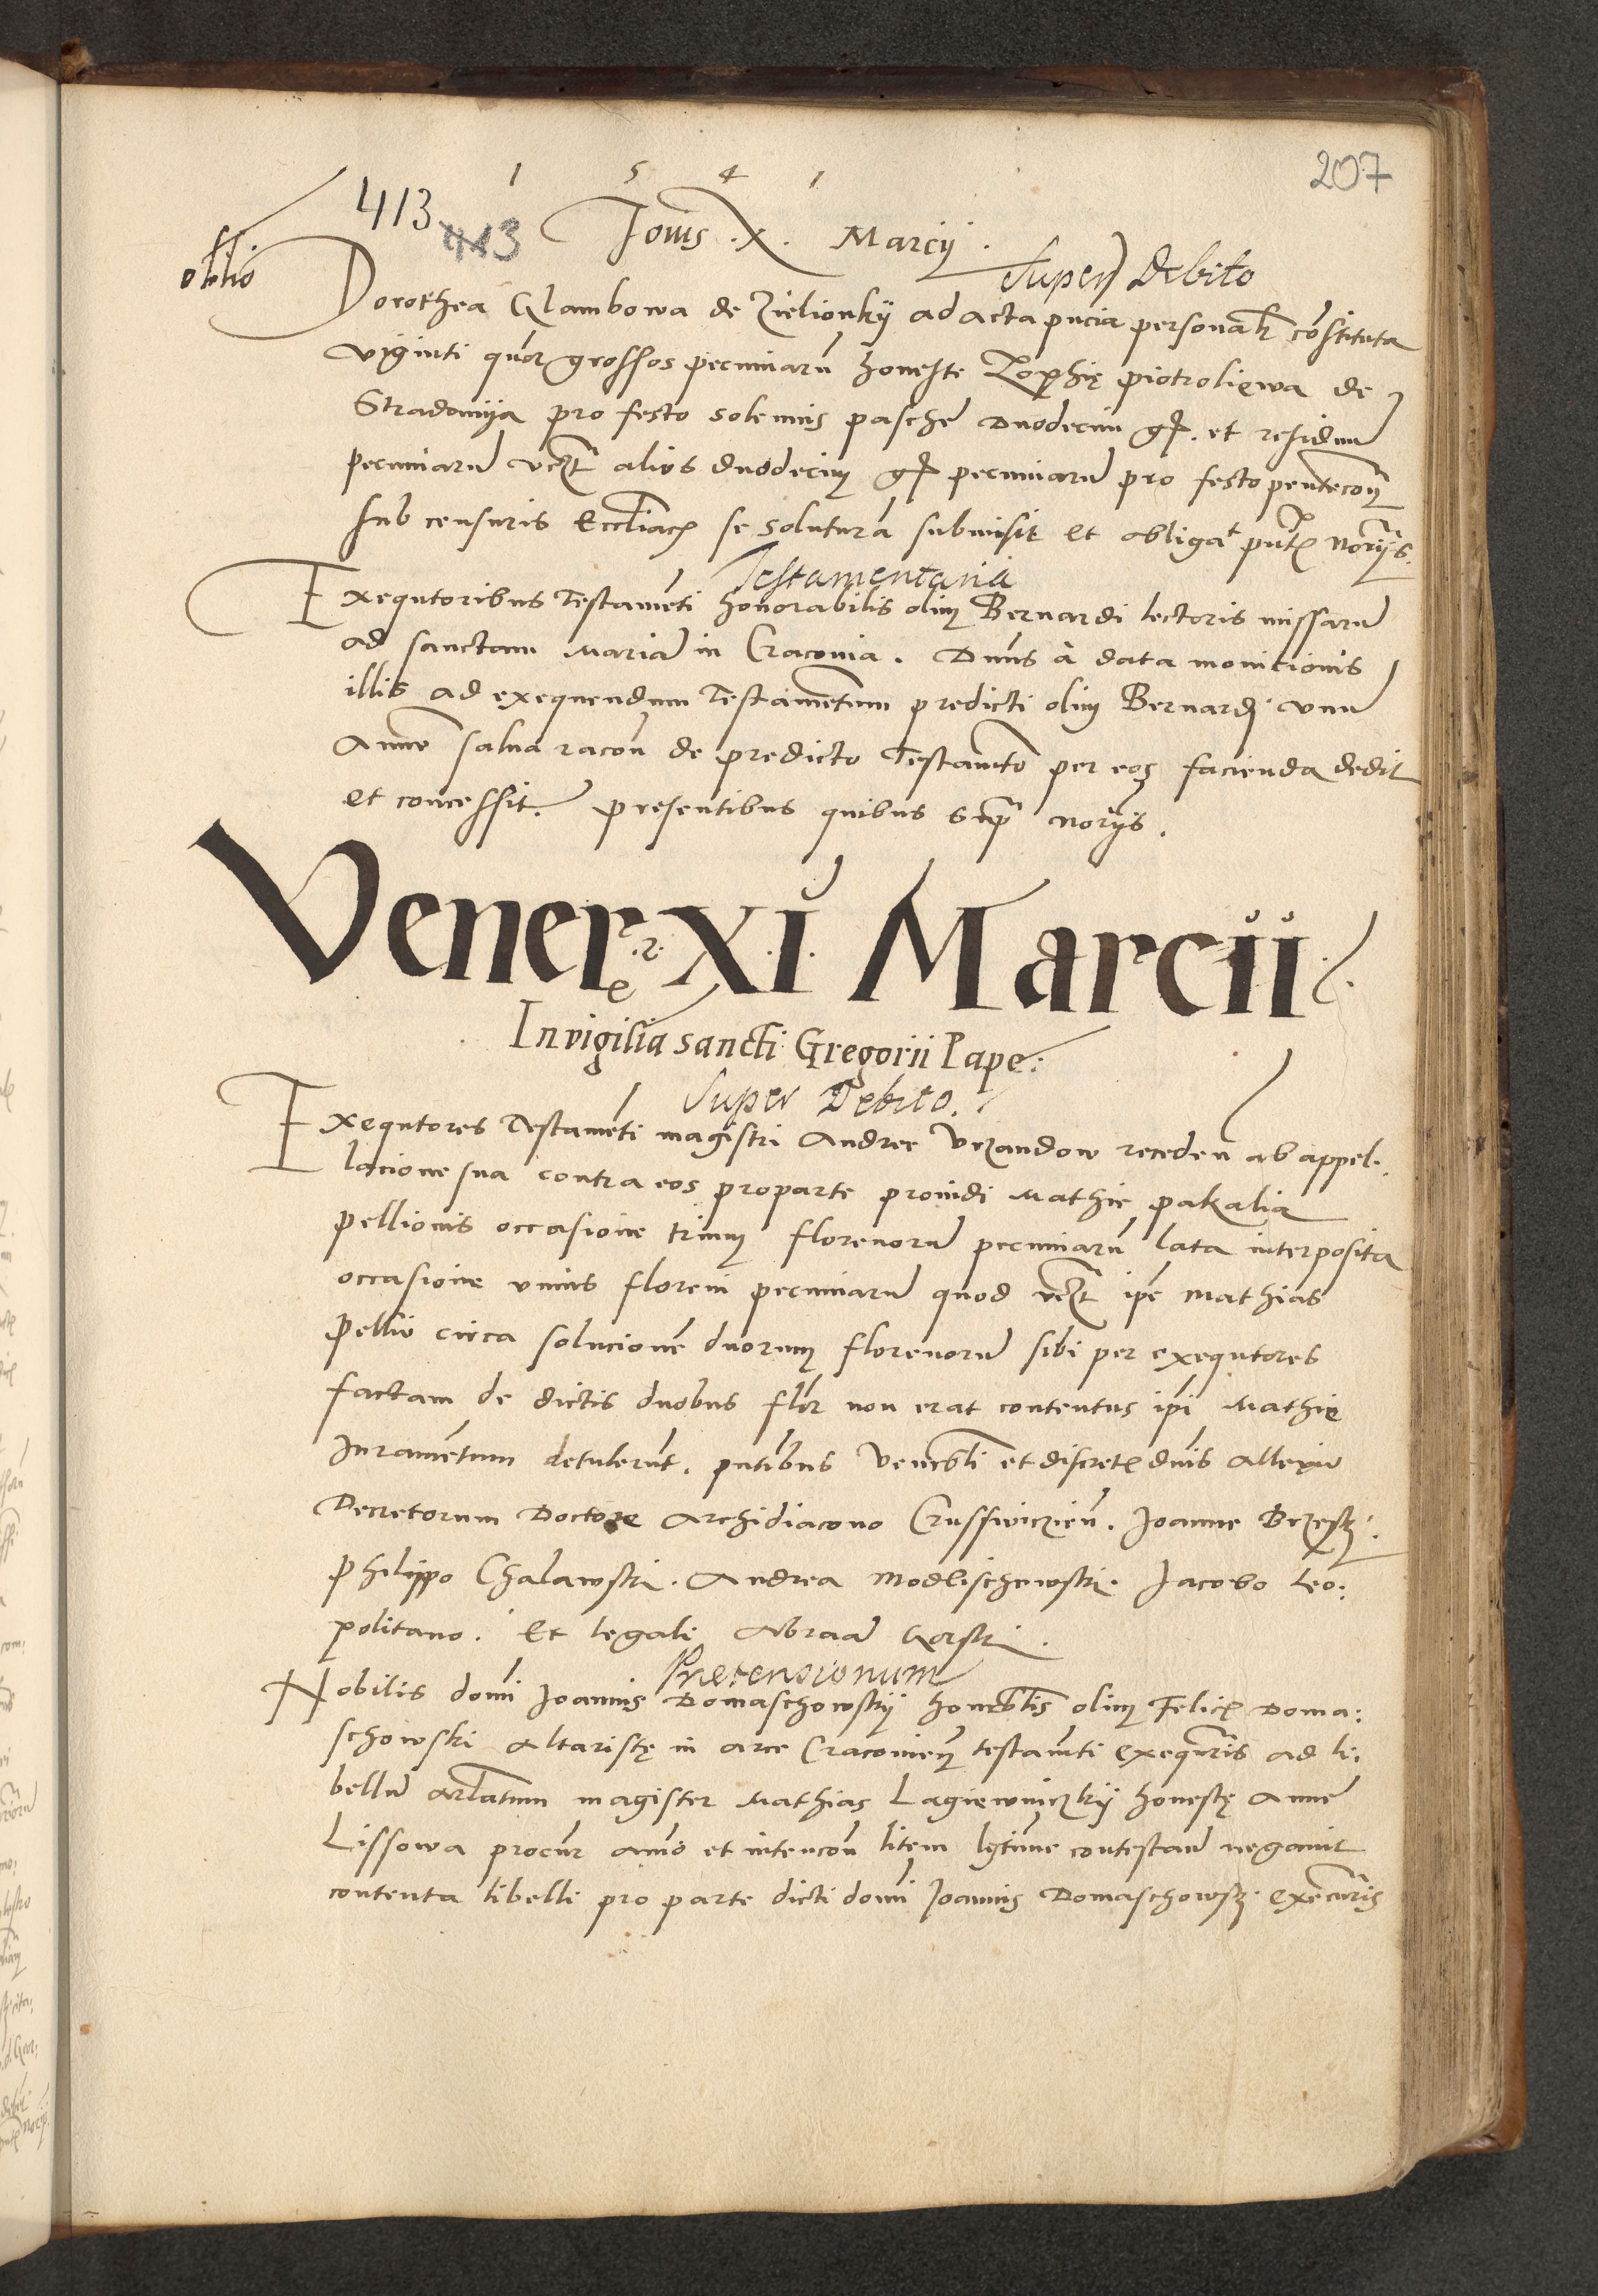 207
1 5 4 1
413 413 Jovis .X. Marcij .
obllio Super Debito
Dorothea Glambowa de Zielionkij ad acta pncia personalr cõstituta
viginti quor grossos pecuniarũ honeste Zophię piotrolięwa de
Stradomija pro festo solennis pasche Duodecim gr. et residuũ
pecuniarũ vczt alios duodecim gr pecuniarũ pro festo pentecoñ
sub censuris Eccliacis se soluturã submisit et obligat pntˉ noriis.
Testamentaria
Exequtoribus Testamẽti honorabilis olim Bernardi lectoris missarũ
ad sanctam Mariã in Cracovia . Dnus à data monicionis
illis ad exequendum Testamẽtum predicti olim Bernardi unũ
Annũ salva racoñ de predicto Testamẽto per eos facienda dedit
et concessit. presentibus quibus supˉ noriis .
Venerˉ XI Marcii
In vigilia sancti Gregorii Pape:
Super Debito.
Exequtores Testamẽti magistri Andree Vrzandow receden ab appel.
lacione sua contra eos pro parte providi Mathie pakalia
pellionis occasione trium florenorũ pecuniarũ lata interposita
occasione unius floreni pecuniarũ quod vczt ipe Mathias
Pellio circa solucionẽ duorum florenorũ sibi per exequtores
factam de dictis duobus flor non erat contentus ipi Mathie
Juramẽtum detulerũt. pntibus Venebli et discretˉ dnis Allexio
Decretorum Doctore Archidiacono Crussvicien̄. Joanne Brzesky.
Philippo Chalawski. Andrea Modlischewski. Jacobo Leo:
politano. Et legali Abraã Gorski.
Pretensionum
Nobilis domi Joannis Domaschowskij honorblis olim Felicˉ Doma:
schowski Altaristę in arce Cracovien testamti exequtris ad li.
bellũ oblatum magister Mathias Lagiewniczkij honestę Anne
Lissowa procur animo et intencoñ litem lgtime contestanñ negavit
contenta libelli pro parte dicti domi Joannis Domaschowski executris